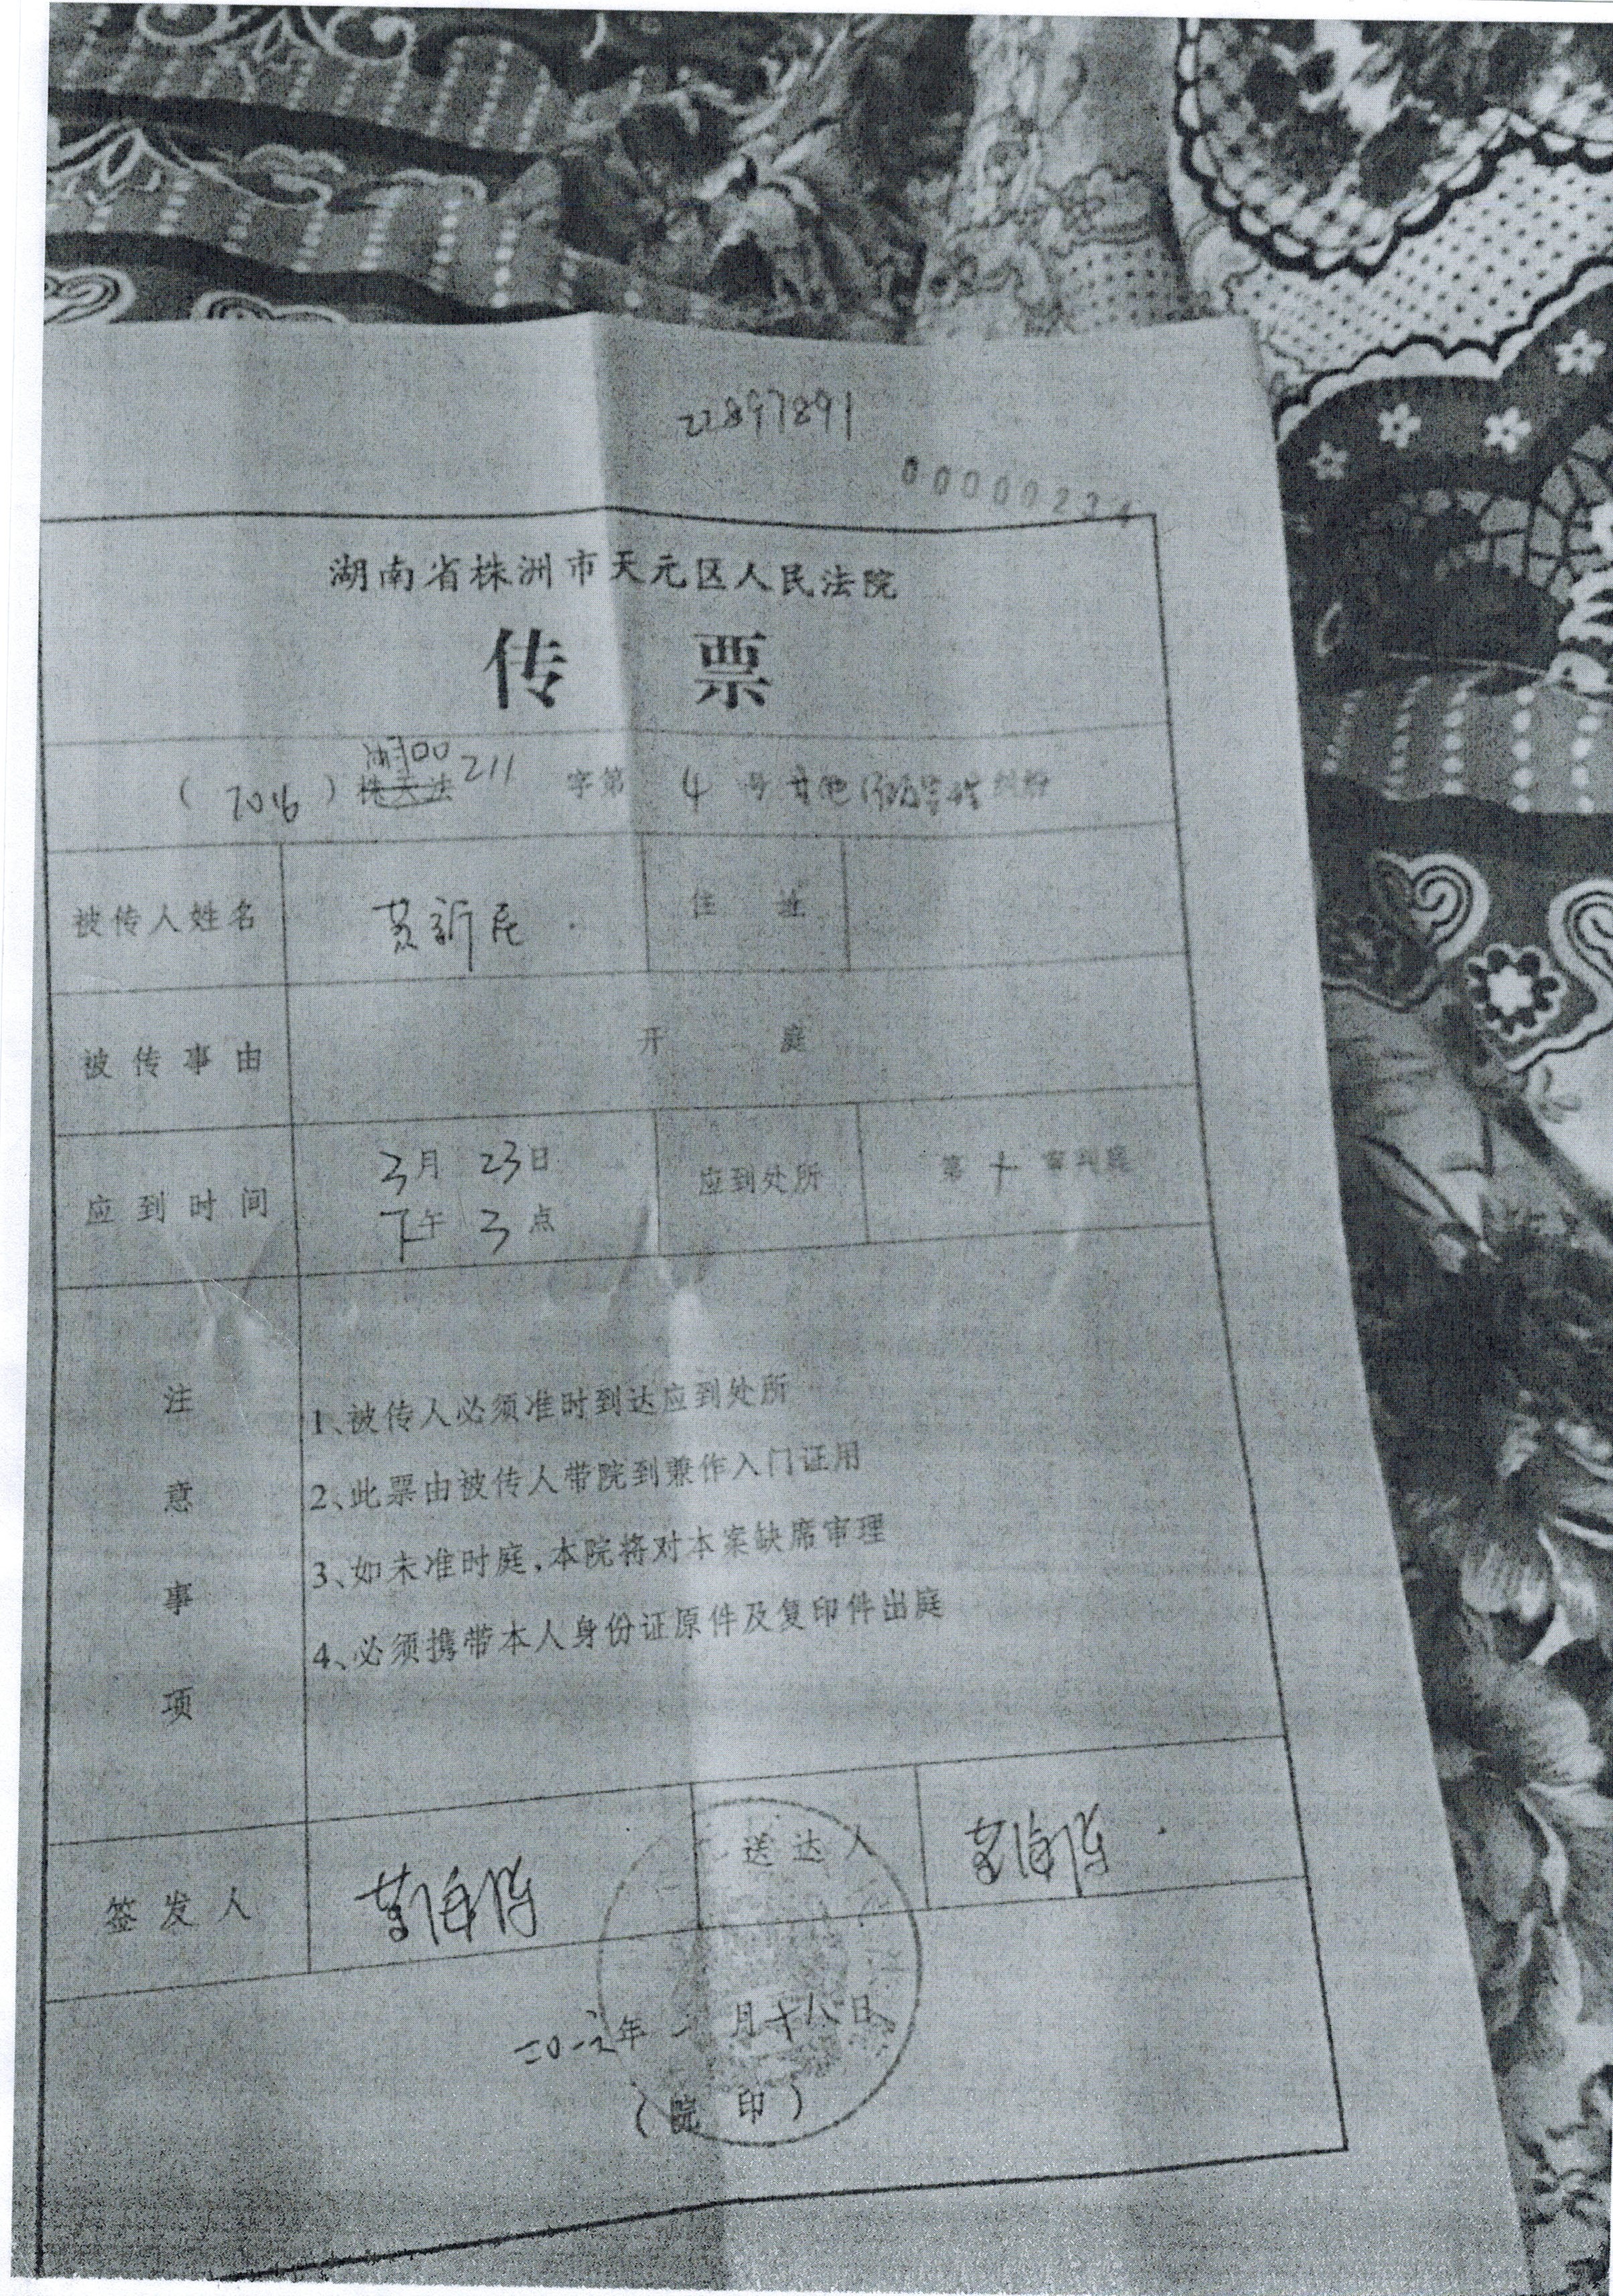 22897891
00000234
湖南省株洲市天元区人民法院
传 票
(2016) 株天法 湘00211 字第 4 号 纠纷
被传人姓名 黄新民 住 址
被传事由 开 庭
应到时间 3月 23日 下午 3点 应到处所 第十审判庭
注意事项
1、被传人必须准时到达应到处所
2、此票由被传人带院到兼作入门证用
3、如未准时庭,本院将对本案缺席审理
4、必须携带本人身份证原件及复印件出庭
签发人 送达人
二0一六年 月十八日
(院 印)